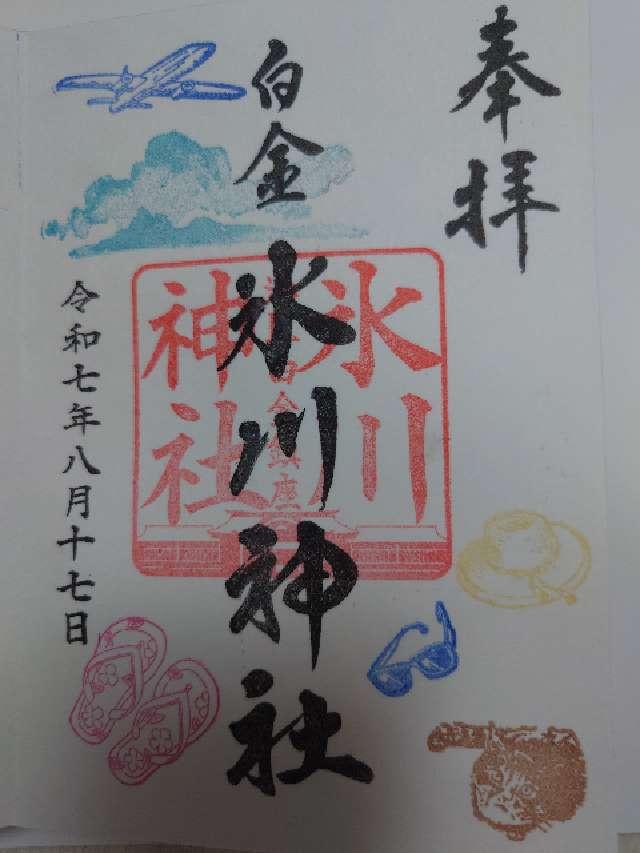 奉拝
白金
氷川神社
氷川
神社
令和七年八月十七日